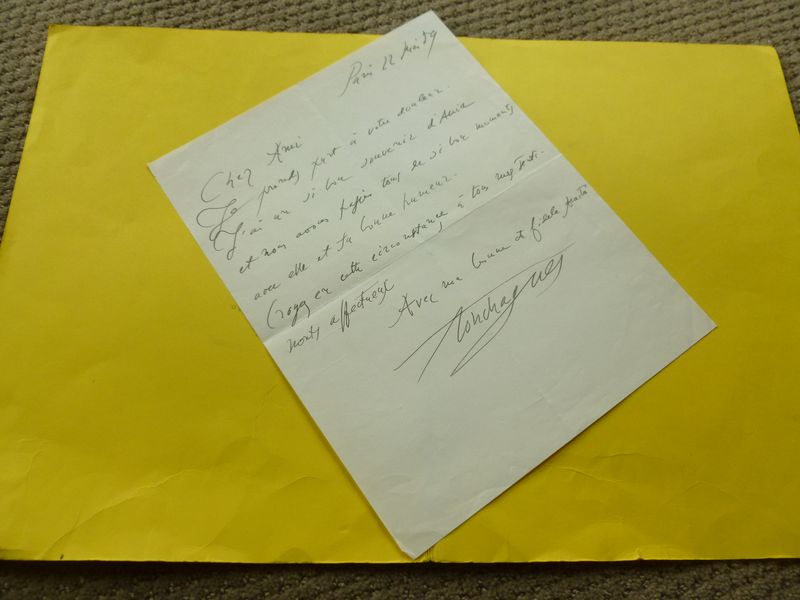 Paris 22 Juin 59
Cher Ami
Je prends part à votre douleur.
J'ai un si bon souvenir d'Annie
et nous avons passé tous de si bon moments
avec elle et sa bonne humeur.
Croyez en cette circonstance à tous mes senti-
ments affectueux
Avec ma bonne et fidèle amitié